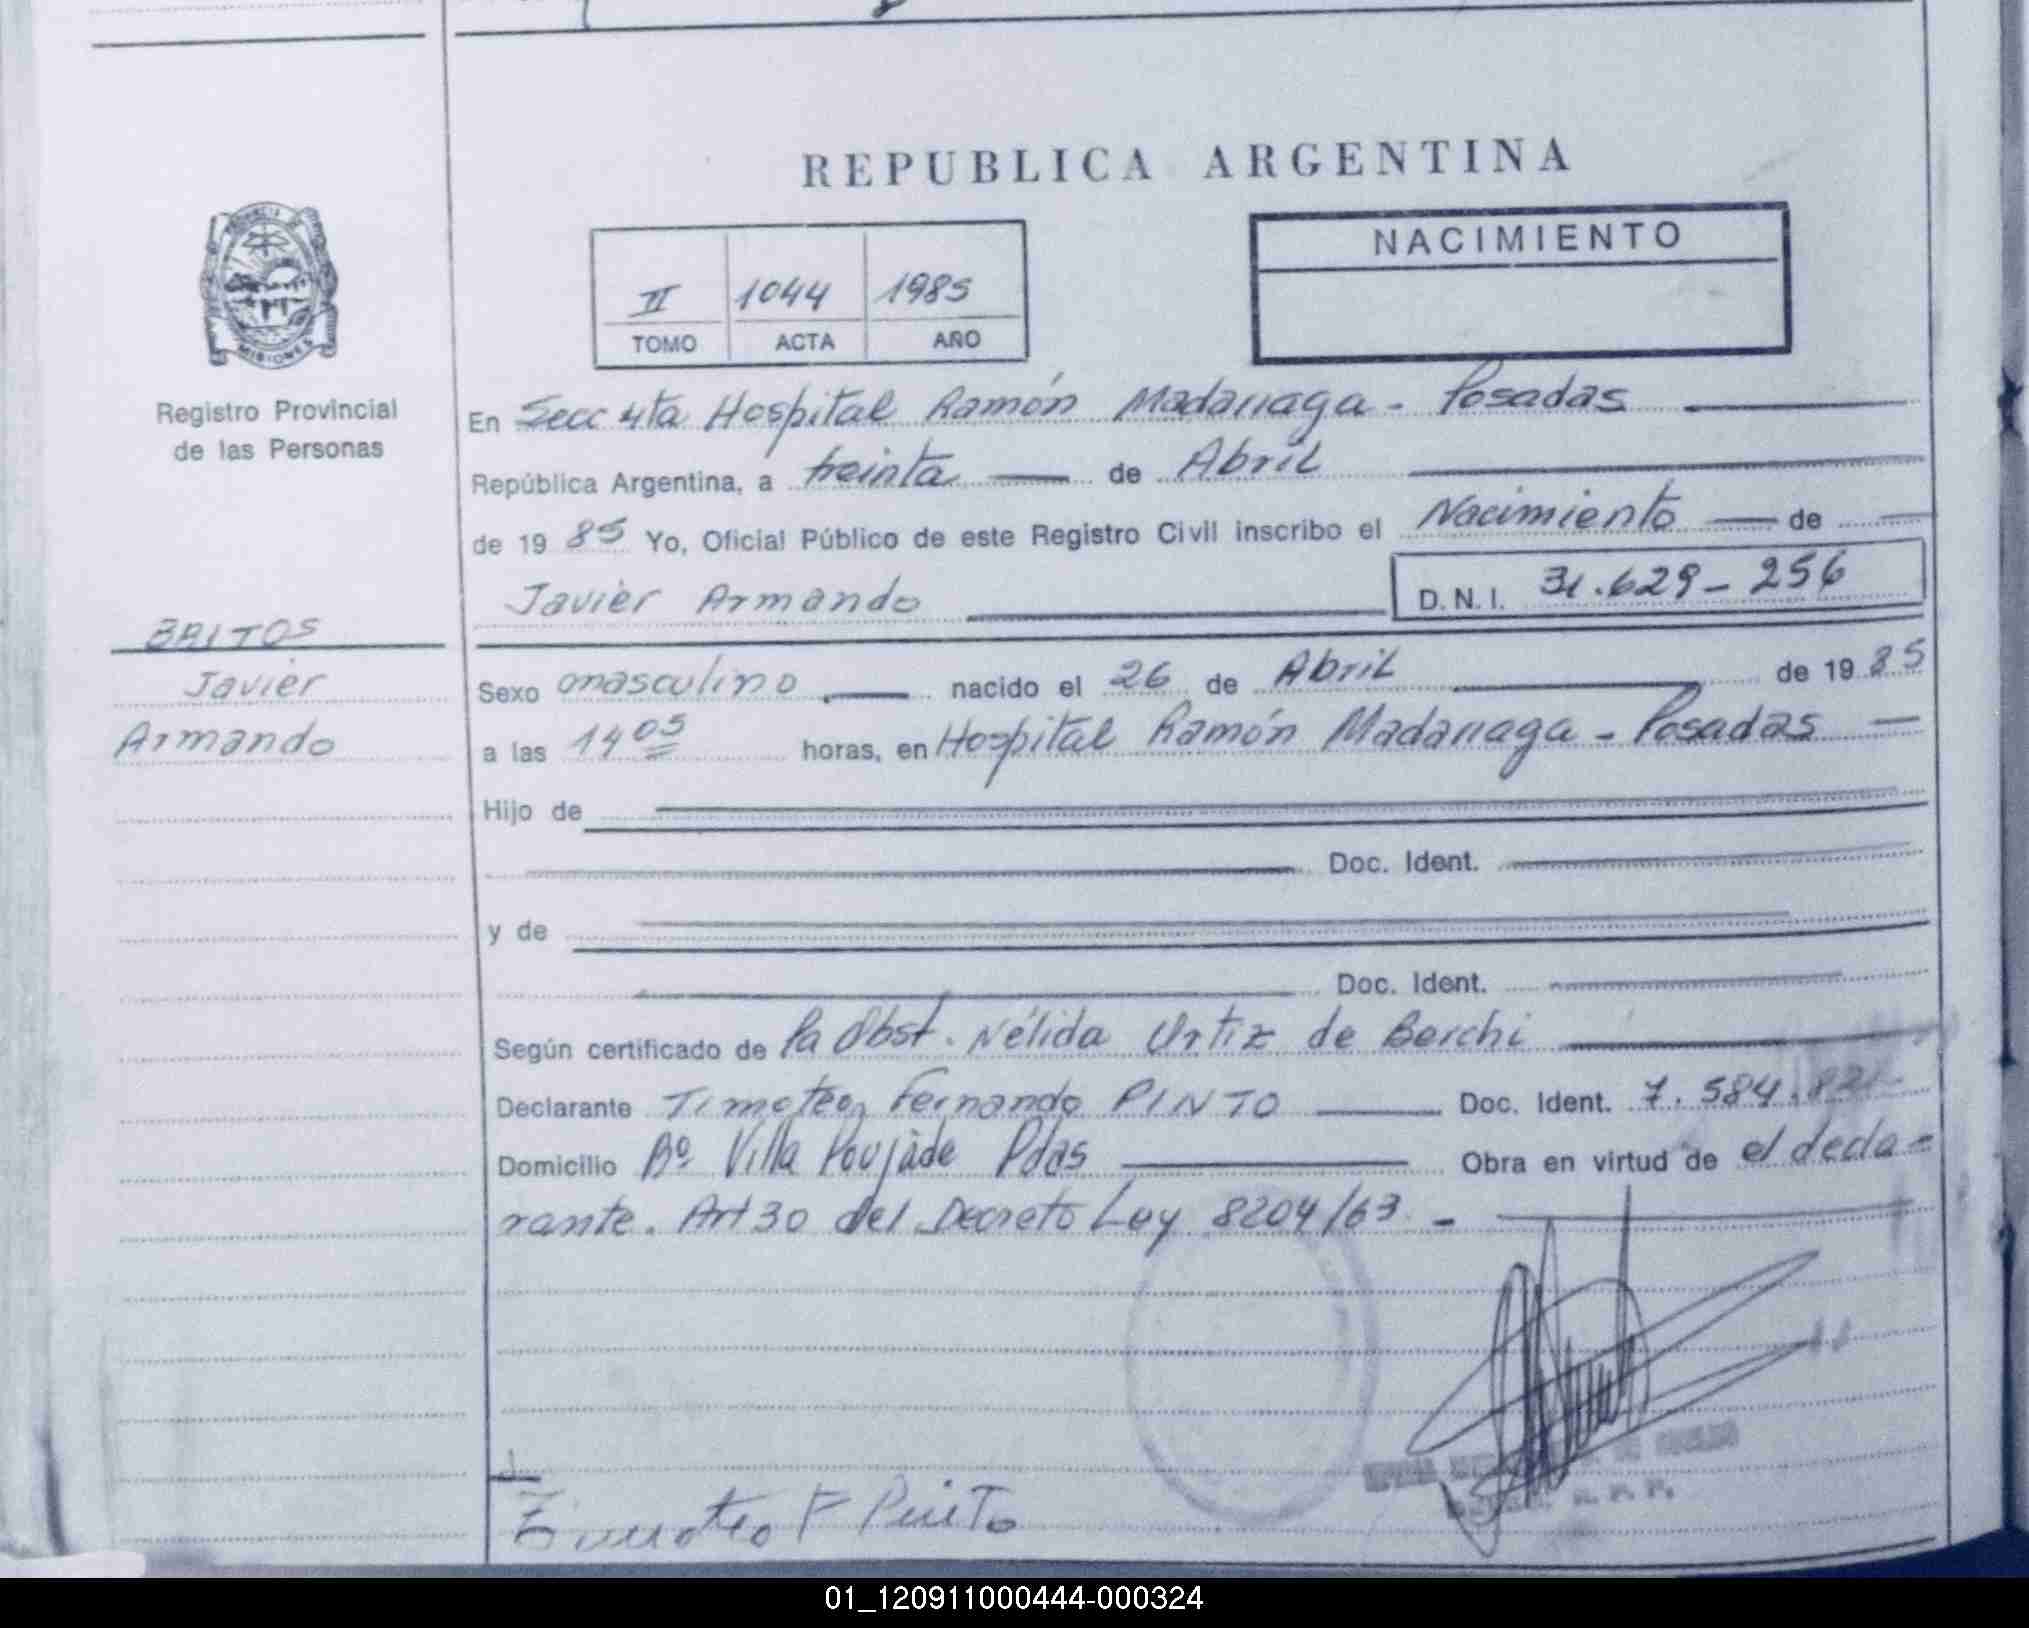 REPUBLICA ARGENTINA
NACIMIENTO
II 1044 1985
TOMO ACTA AÑO
MISIONES
Registro Provincial
de las Personas
En Secc 4ta Hospital Ramón Madariaga - Posadas
República Argentina, a treinta de Abril
de 1985 Yo, Oficial Público de este Registro Civil inscribo el Nacimiento de
Javier Armando D.N.I. 31.629-256
BRITOS
Javier
Armando
Sexo masculino nacido el 26 de Abril de 1985
a las 14 05 horas, en Hospital Ramón Madariaga - Posadas
Hijo de
Doc. Ident.
y de
Doc. Ident.
Según certificado de la Obst. Nélida Ortiz de Berchi
Declarante Timoteo Fernando PINTO Doc. Ident. 7.584.
Domicilio Bº Villa Poujade Pdas Obra en virtud de el decla=
rante. Art 30 del Decreto Ley 8204/63 -
Timoteo F Pinto
01_120911000444-000324